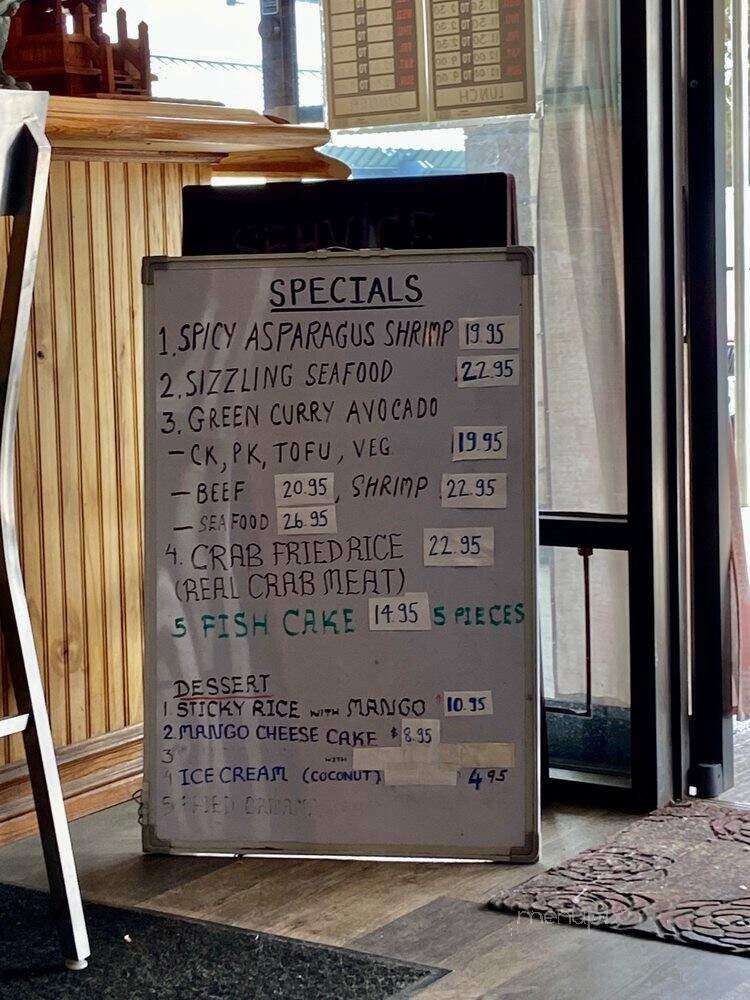 SPECIALS
1. SPICY ASPARAGUS SHRIMP 19.95
2. SIZZLING SEAFOOD 22.95
3. GREEN CURRY AVOCADO
- CK, PK, TOFU, VEG 19.95
- BEEF 20.95, SHRIMP 22.95
- SEAFOOD 26.95
4. CRAB FRIED RICE 22.95
(REAL CRAB MEAT)
5 FISH CAKE 14.95 5 PIECES
DESSERT
1 STICKY RICE WITH MANGO $10.95
2 MANGO CHEESE CAKE $8.95
3 WITH
4 ICE CREAM (COCONUT) 4.95
5 FRIED
LUNCH
DINNER